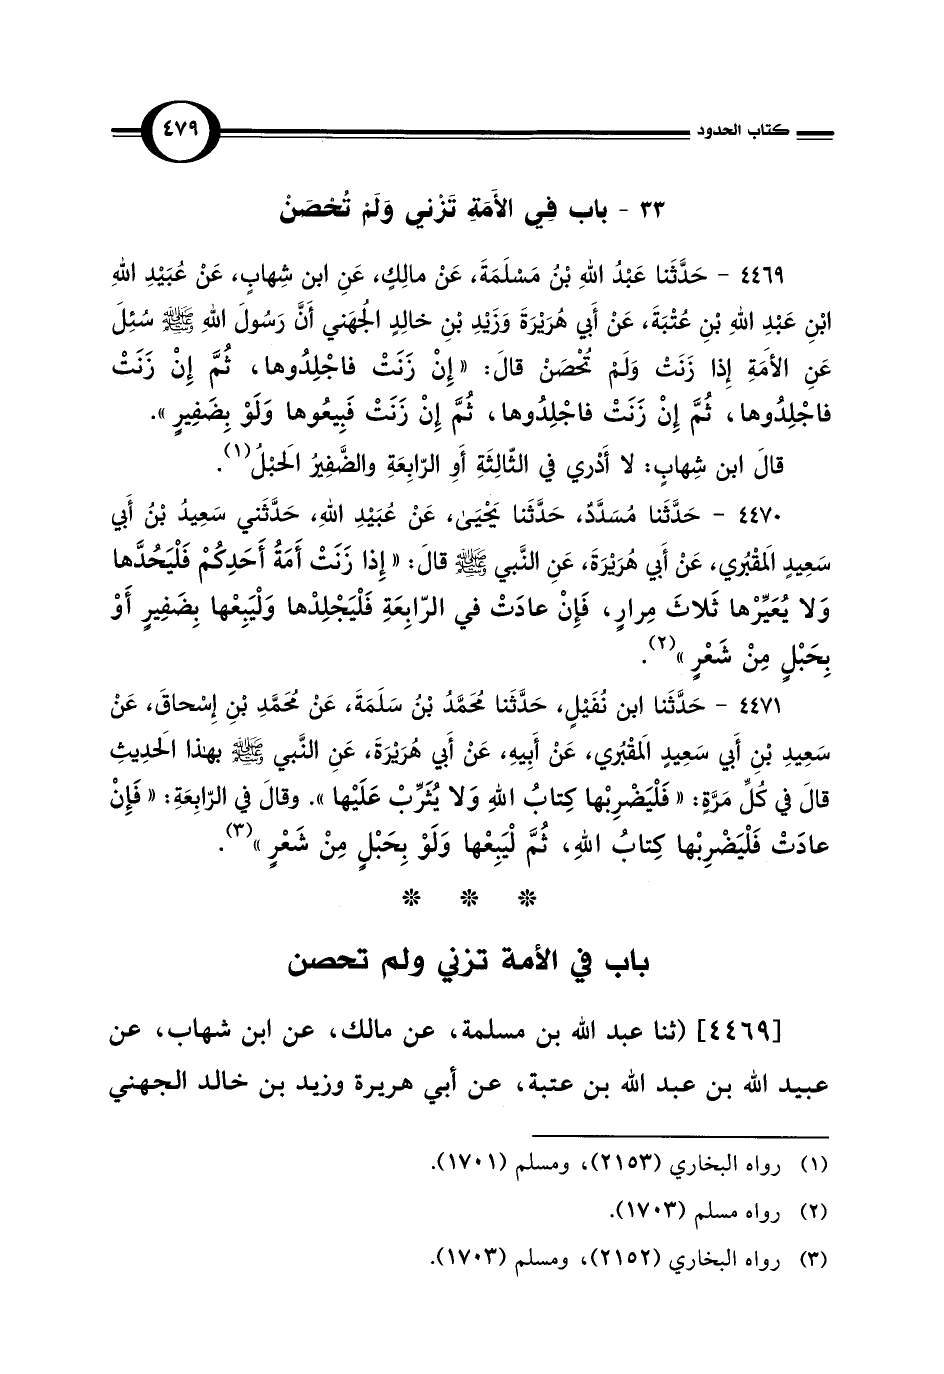 كتاب الحدود ٤٧٩
٣٣ - باب فِي الأَمَةِ تَزْني وَلَمْ تُحْصَنْ
٤٤٦٩ - حَدَّثَنا عَبْدُ اللهِ بْنُ مَسْلَمَةَ، عَنْ مالِكٍ، عَنِ ابن شِهابٍ، عَنْ عُبَيْدِ اللهِ
ابْنِ عَبْدِ اللهِ بْنِ عُتْبَةَ، عَنْ أَبي هُرَيْرَةَ وَزَيْدِ بْنِ خالِدٍ الجُهَني أَنَّ رَسُولَ اللهِ ﷺ سُئِلَ
عَنِ الأَمَةِ إِذا زَنَتْ وَلَمْ تُحْصَنْ قالَ: « إِنْ زَنَتْ فاجْلِدُوها، ثُمَّ إِنْ زَنَتْ
فاجْلِدُوها، ثُمَّ إِنْ زَنَتْ فاجْلِدُوها، ثُمَّ إِنْ زَنَتْ فَبِيعُوها وَلَوْ بِضَفِيرٍ ».
قالَ ابن شِهابٍ: لا أَدْري في الثّالِثَةِ أَوِ الرّابِعَةِ والضَّفِيرُ الحَبْلُ(١).
٤٤٧٠ - حَدَّثَنا مُسَدَّدٌ، حَدَّثَنا يَحْيَى، عَنْ عُبَيْدِ اللهِ، حَدَّثَني سَعِيدُ بْنُ أَبي
سَعِيدٍ المَقْبُري، عَنْ أَبي هُرَيْرَةَ، عَنِ النَّبي ﷺ قالَ: « إِذا زَنَتْ أَمَةُ أَحَدِكُمْ فَلْيَحُدَّها
وَلا يُعَيِّرْها ثَلاثَ مِرارٍ، فَإِنْ عادَتْ في الرّابِعَةِ فَلْيَجْلِدْها وَلْيَبِعْها بِضَفِيرٍ أَوْ
بِحَبْلٍ مِنْ شَعْرٍ »(٢).
٤٤٧١ - حَدَّثَنا ابن نُفَيْلٍ، حَدَّثَنا مُحَمَّدُ بْنُ سَلَمَةَ، عَنْ مُحَمَّدِ بْنِ إِسْحاقَ، عَنْ
سَعِيدِ بْنِ أَبي سَعِيدٍ المَقْبُري، عَنْ أَبِيهِ، عَنْ أَبي هُرَيْرَةَ، عَنِ النَّبي ﷺ بهذا الحَدِيثِ
قالَ في كُلِّ مَرَّةٍ: « فَلْيَضْرِبْها كِتابُ اللهِ وَلا يُثَرِّبْ عَلَيْها ». وقالَ في الرّابِعَةِ: « فَإِنْ
عادَتْ فَلْيَضْرِبْها كِتابُ اللهِ، ثُمَّ لْيَبِعْها وَلَوْ بِحَبْلٍ مِنْ شَعْرٍ »(٣).
* * *
باب في الأمة تزني ولم تحصن
[٤٤٦٩] (ثنا عبد الله بن مسلمة، عن مالك، عن ابن شهاب، عن
عبيد الله بن عبد الله بن عتبة، عن أبي هريرة وزيد بن خالد الجهني
(١) رواه البخاري (٢١٥٣)، ومسلم (١٧٠١).
(٢) رواه مسلم (١٧٠٣).
(٣) رواه البخاري (٢١٥٢)، ومسلم (١٧٠٣).